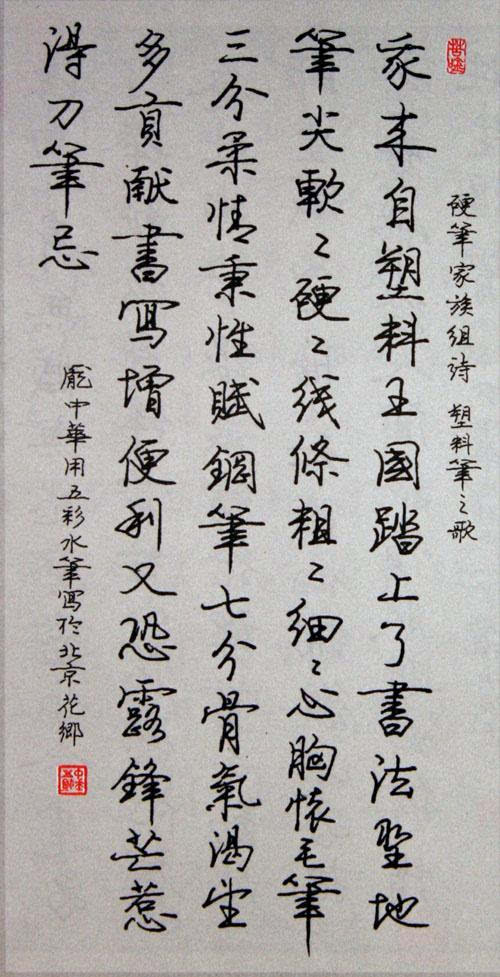 硬筆家族组詩 塑料筆之歌
我来自塑料王國踏上了書法聖地
筆尖軟〻硬〻线條粗〻細〻心胸懷毛筆
三分柔情秉性賦鋼筆七分骨氣渴望
多貢献書寫增便利又恐露鋒芒惹
得刀筆忌
龐中華用五彩水筆寫於北京花鄉